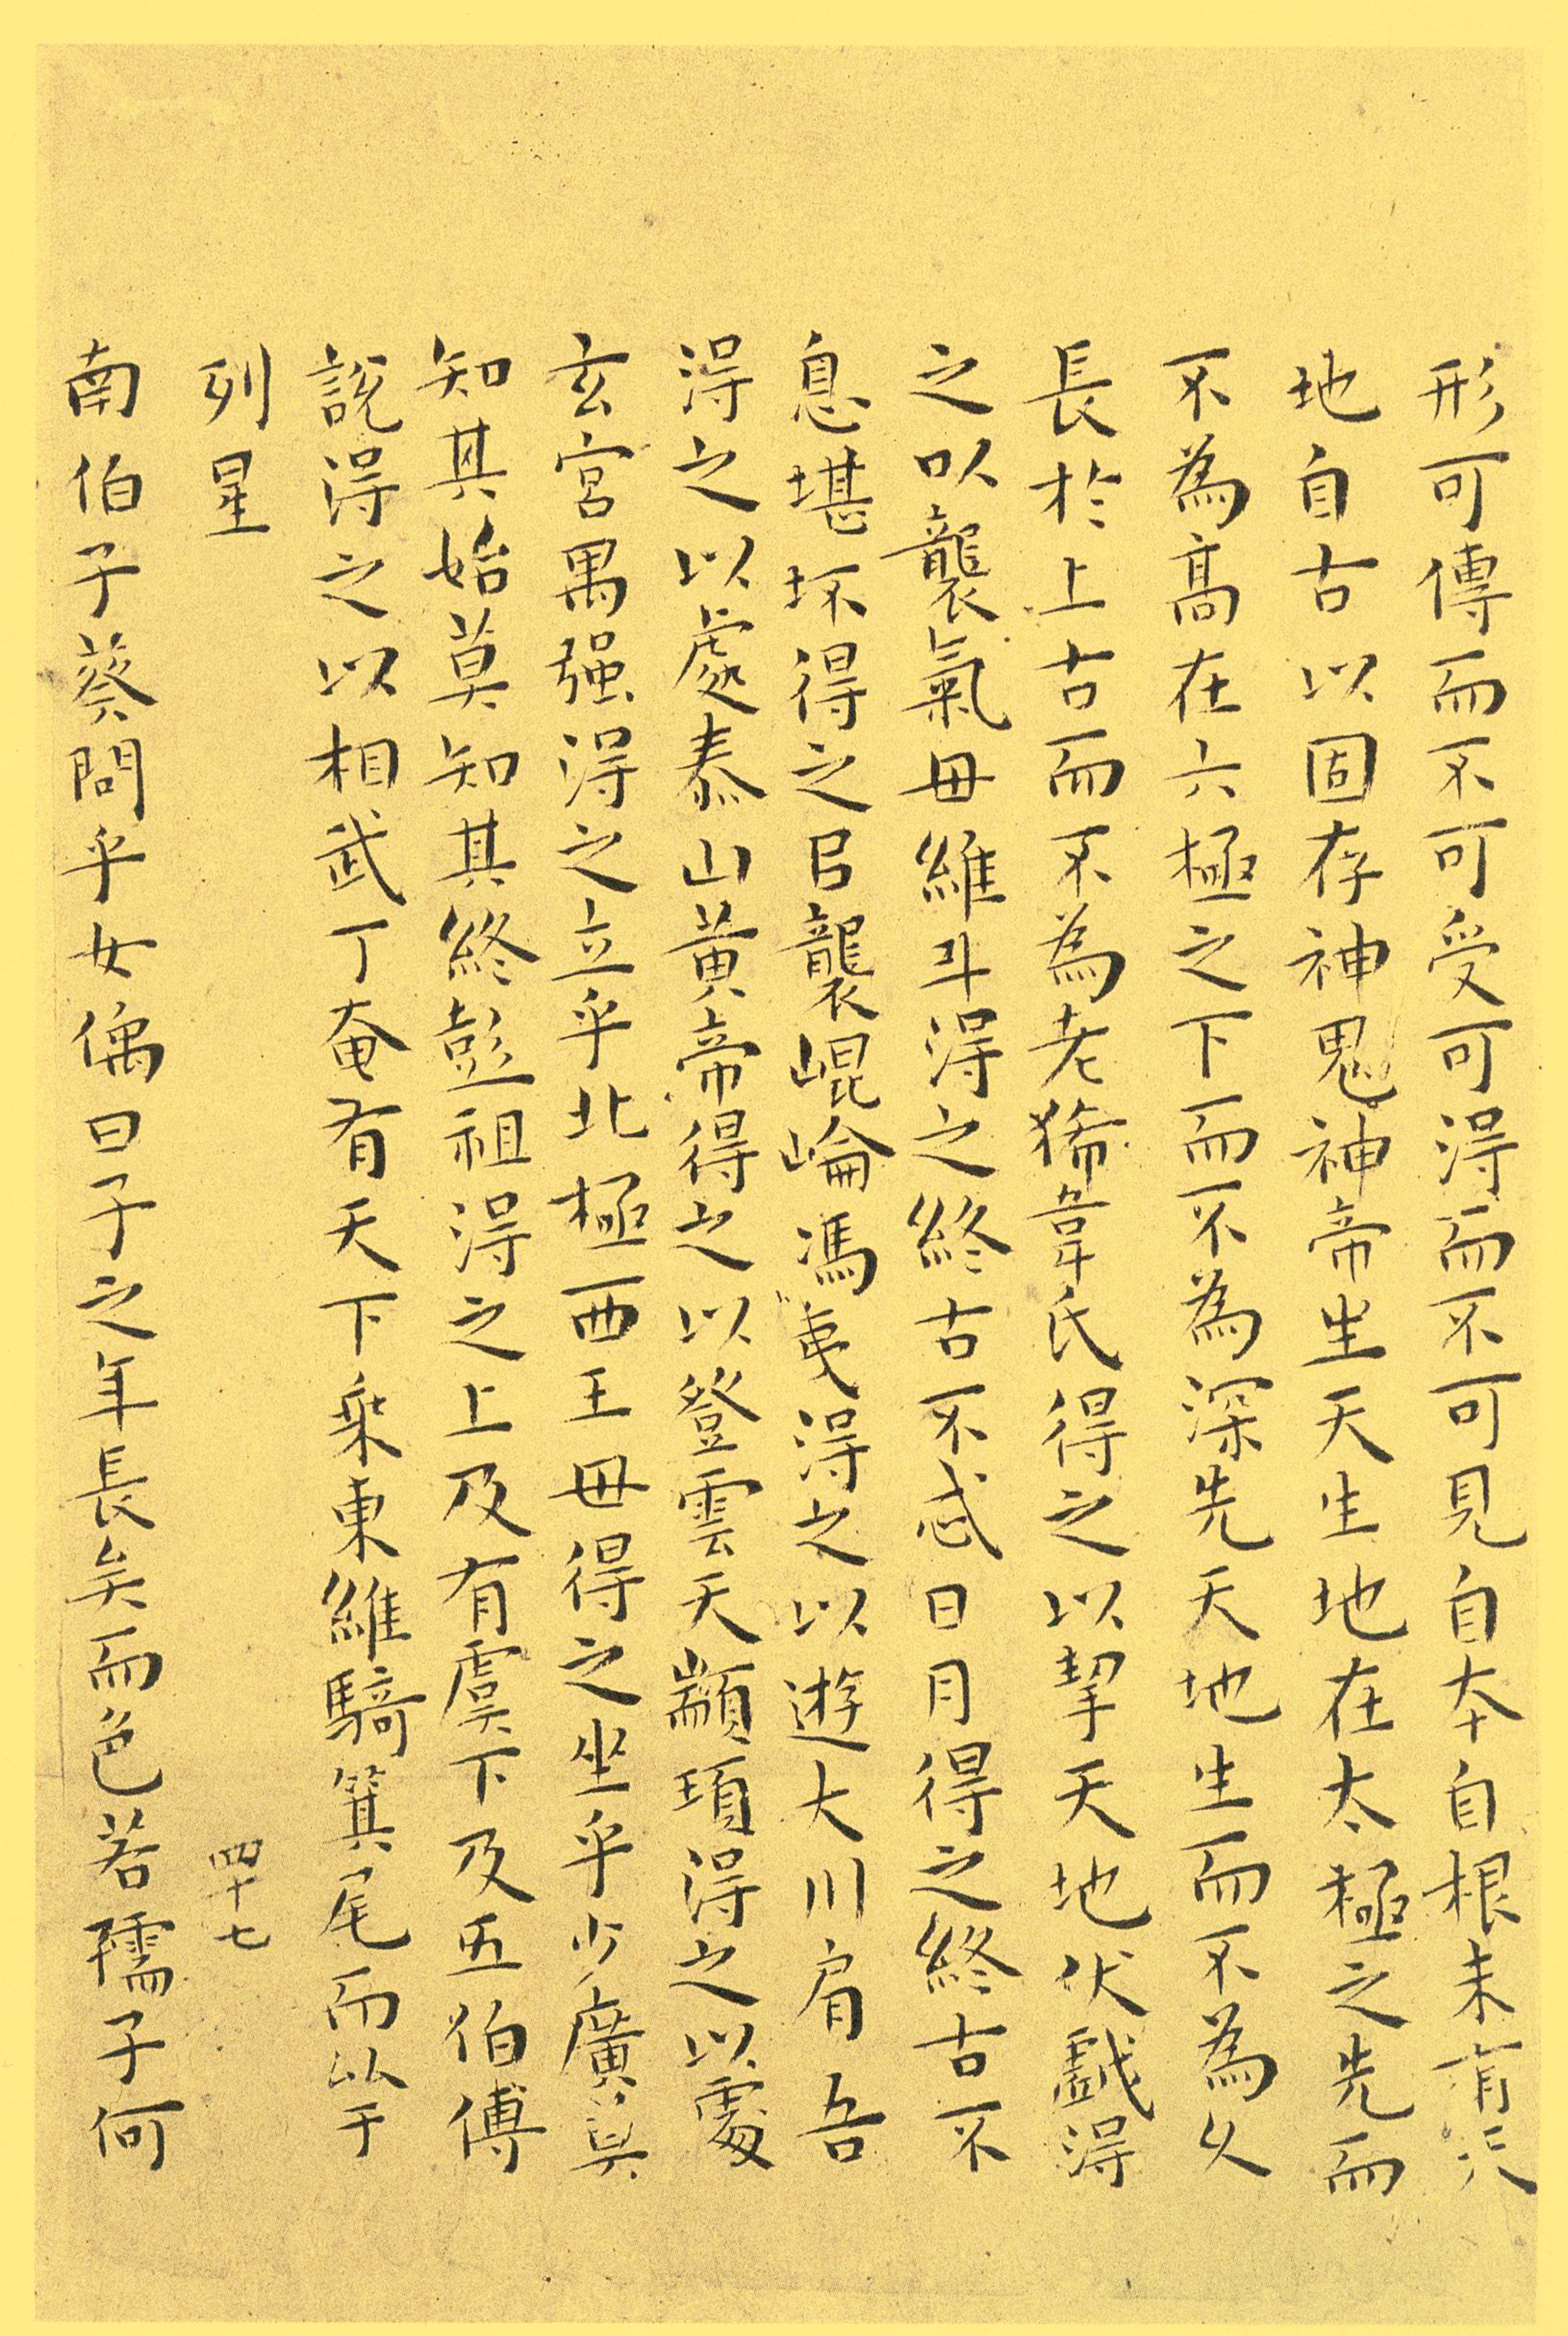 形可傳而不可受可得而不可見自本自根未有天
地自古以固存神鬼神帝生天生地在太極之先而
不為高在六極之下而不為深先天地生而不為久
長於上古而不為老狶韋氏得之以挈天地伏戲得
之以襲氣母維斗得之終古不忒日月得之終古不
息堪坏得之㠯襲崐崘馮夷得之以遊大川肩吾
得之以處泰山黃帝得之以登雲天顓頊得之以處
玄宮禺强得之立乎北極西王母得之坐乎少廣莫
知其始莫知其終彭祖得之上及有虞下及五伯傅
說得之以相武丁奄有天下乗東維騎箕尾而比于
列星
四十七
南伯子葵問乎女偊曰子之年長矣而色若孺子何